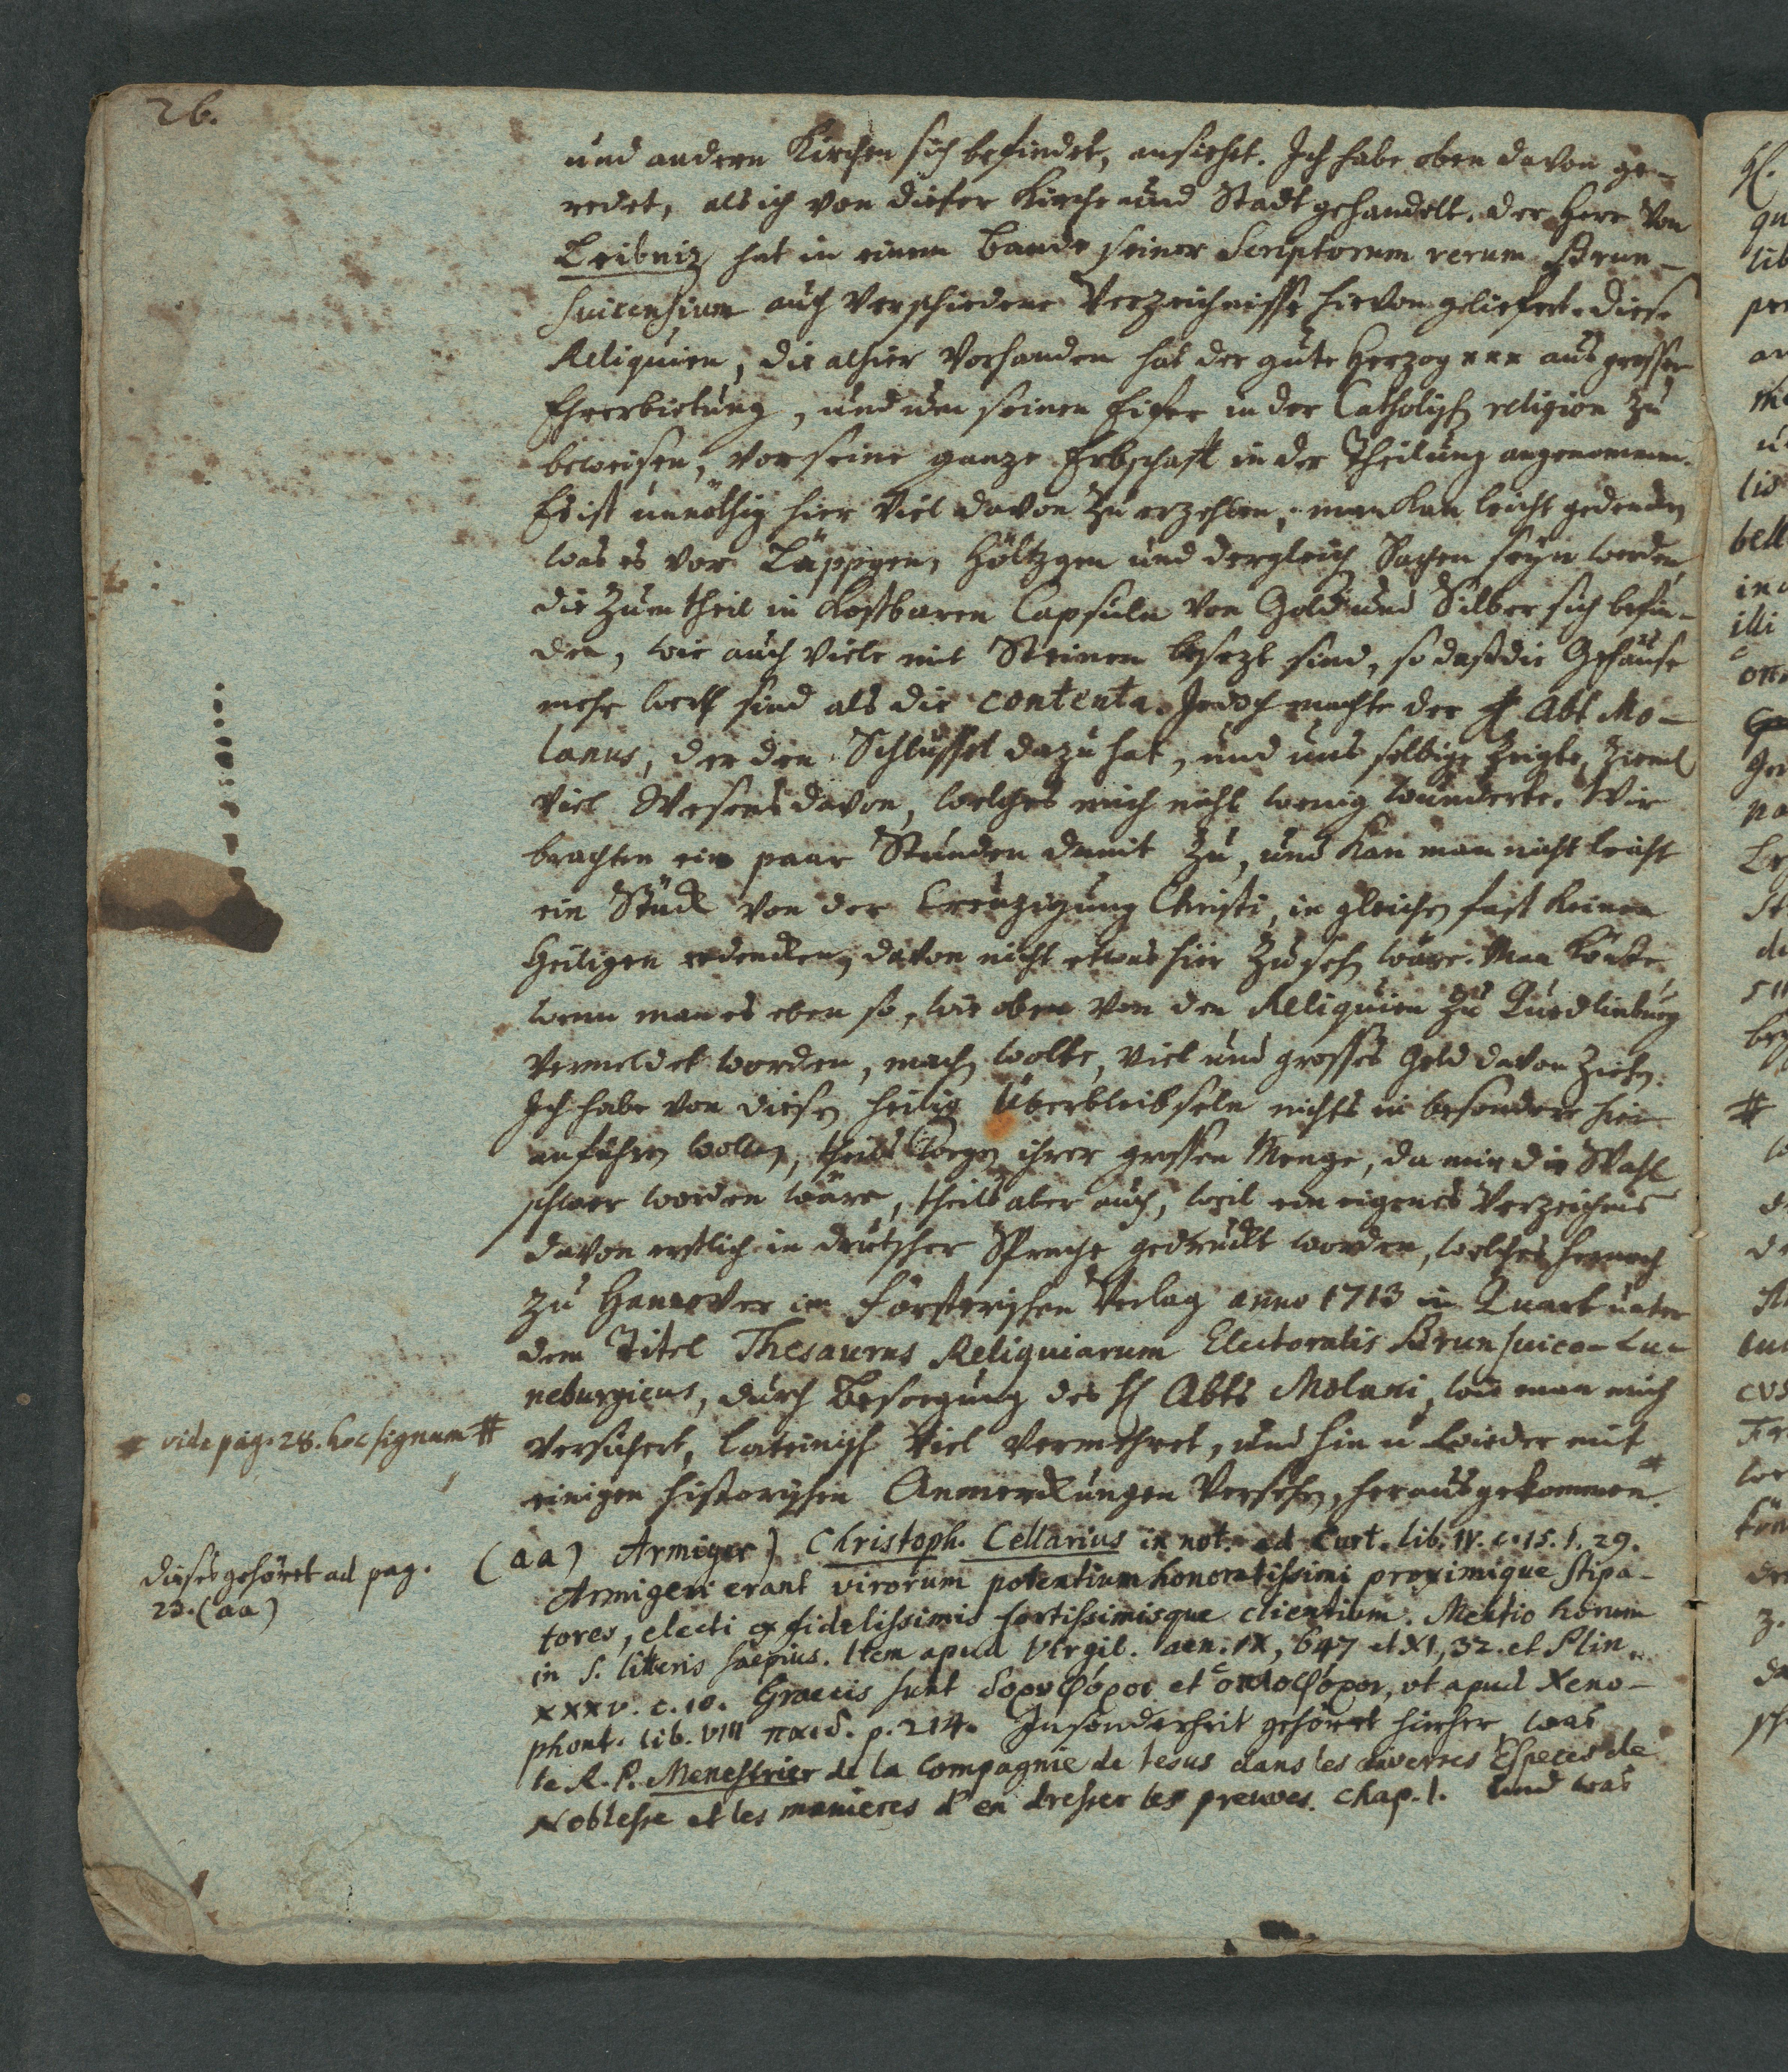 26.
und andern Kirchen sich befindet, ansiehet. Ich habe oben davon ge-
redet, als ich von dieser Kirche und Stadt gehandelt. der Herr von
Leibniz hat in einem Bande seiner Scriptorum rerum Brun-
suicensium auch verschiedene Verzeichnisse hievon geliefert. Diese
Reliquien, die alhier vorhanden hat der gute Herzog xxx aus grosser
Ehrerbietung, und um seinen Eifer in der Catholisch religion zu
beweisen, vor seine ganze Erbschaft in der Theilung angenommen.
Es ist unnöthig hier viel davon zu erzehlen, man kan leicht gedencken
was es vor Läppgen, Höltzgen und dergleich Sachen seyn werden,
die zum theil in kostbaren Capsuln von Gold und Silber sich befin-
den, wie auch viele mit Steinen besezt sind, so daß die Gehäuse
mehr werth sind als die contenta. Jedoch machte der H Abt Mo-
lanus, der den Schlüssel dazu hat, und uns selbige zeigte, ziemL
viel Wesens davon, welches mich nicht wenig wunderte. Wir
brachten ein paar Stunden damit zu, und kan man nicht leicht
ein Stück von der Creuzigung Christi, in gleichen fast keinen
Heiligen erdencken, davon nicht etwas hier zu sehen wäre. Man könte
wenn man es eben so, wie oben von den Reliquien zu Quedlinburg
vermeldet worden, machen wolte, viel und grosses Geld davon ziehen.
Ich habe von diesen heilig Überbleibseln nichts in besondere hier
anführen wollen, theils wegen ihrer grossen Menge, da mir die Wahl
schwer worden wäre, theils aber auch, weil ein eigenes Verzeichnis
davon erstlich in deutscher Sprache gedruckt worden, welches hernach
zu Hannover im Försterischen Verlag anno 1713 in Quart unter
dem Titel Thesaurus Reliquiarum Electoralis Brunsuico-Lu-
neburgicus, durch Besorgung des H Abts Molani, wie man mich
# vide pag. 28. hoc signum #
versichert, lateinisch viel vermehret, und hin u wieder mit
einigen historischen Anmerckungen versehen, herausgekommen. #
dieses gehöret ad pag.
23. (aa)
(aa) Armiger) Christoph. Cellarius in not. ad Curt. lib. IV. c. 15. §. 29.
Armigeri erant virorum potentium honoratissimi proximique stipa-
tores, electi ex fidelissimis fortissimisque clientium. Mentio horum
in S. litteris saepius. Item apud Virgil. aen. IX, 647 et XI, 32. et Plin.
XXXV. c. 10. Graecis sunt δορυφόροι et ὁπλοφόροι, vt apud Xeno-
phont. lib. VIII παιδ. p. 214. Insonderheit gehöret hieher, was
le R. P. Menestrier de la Compagnie de Iesus dans les diverses Especes de
Noblesse et les manieres d'en dresser les preuves. chap. 1. und was